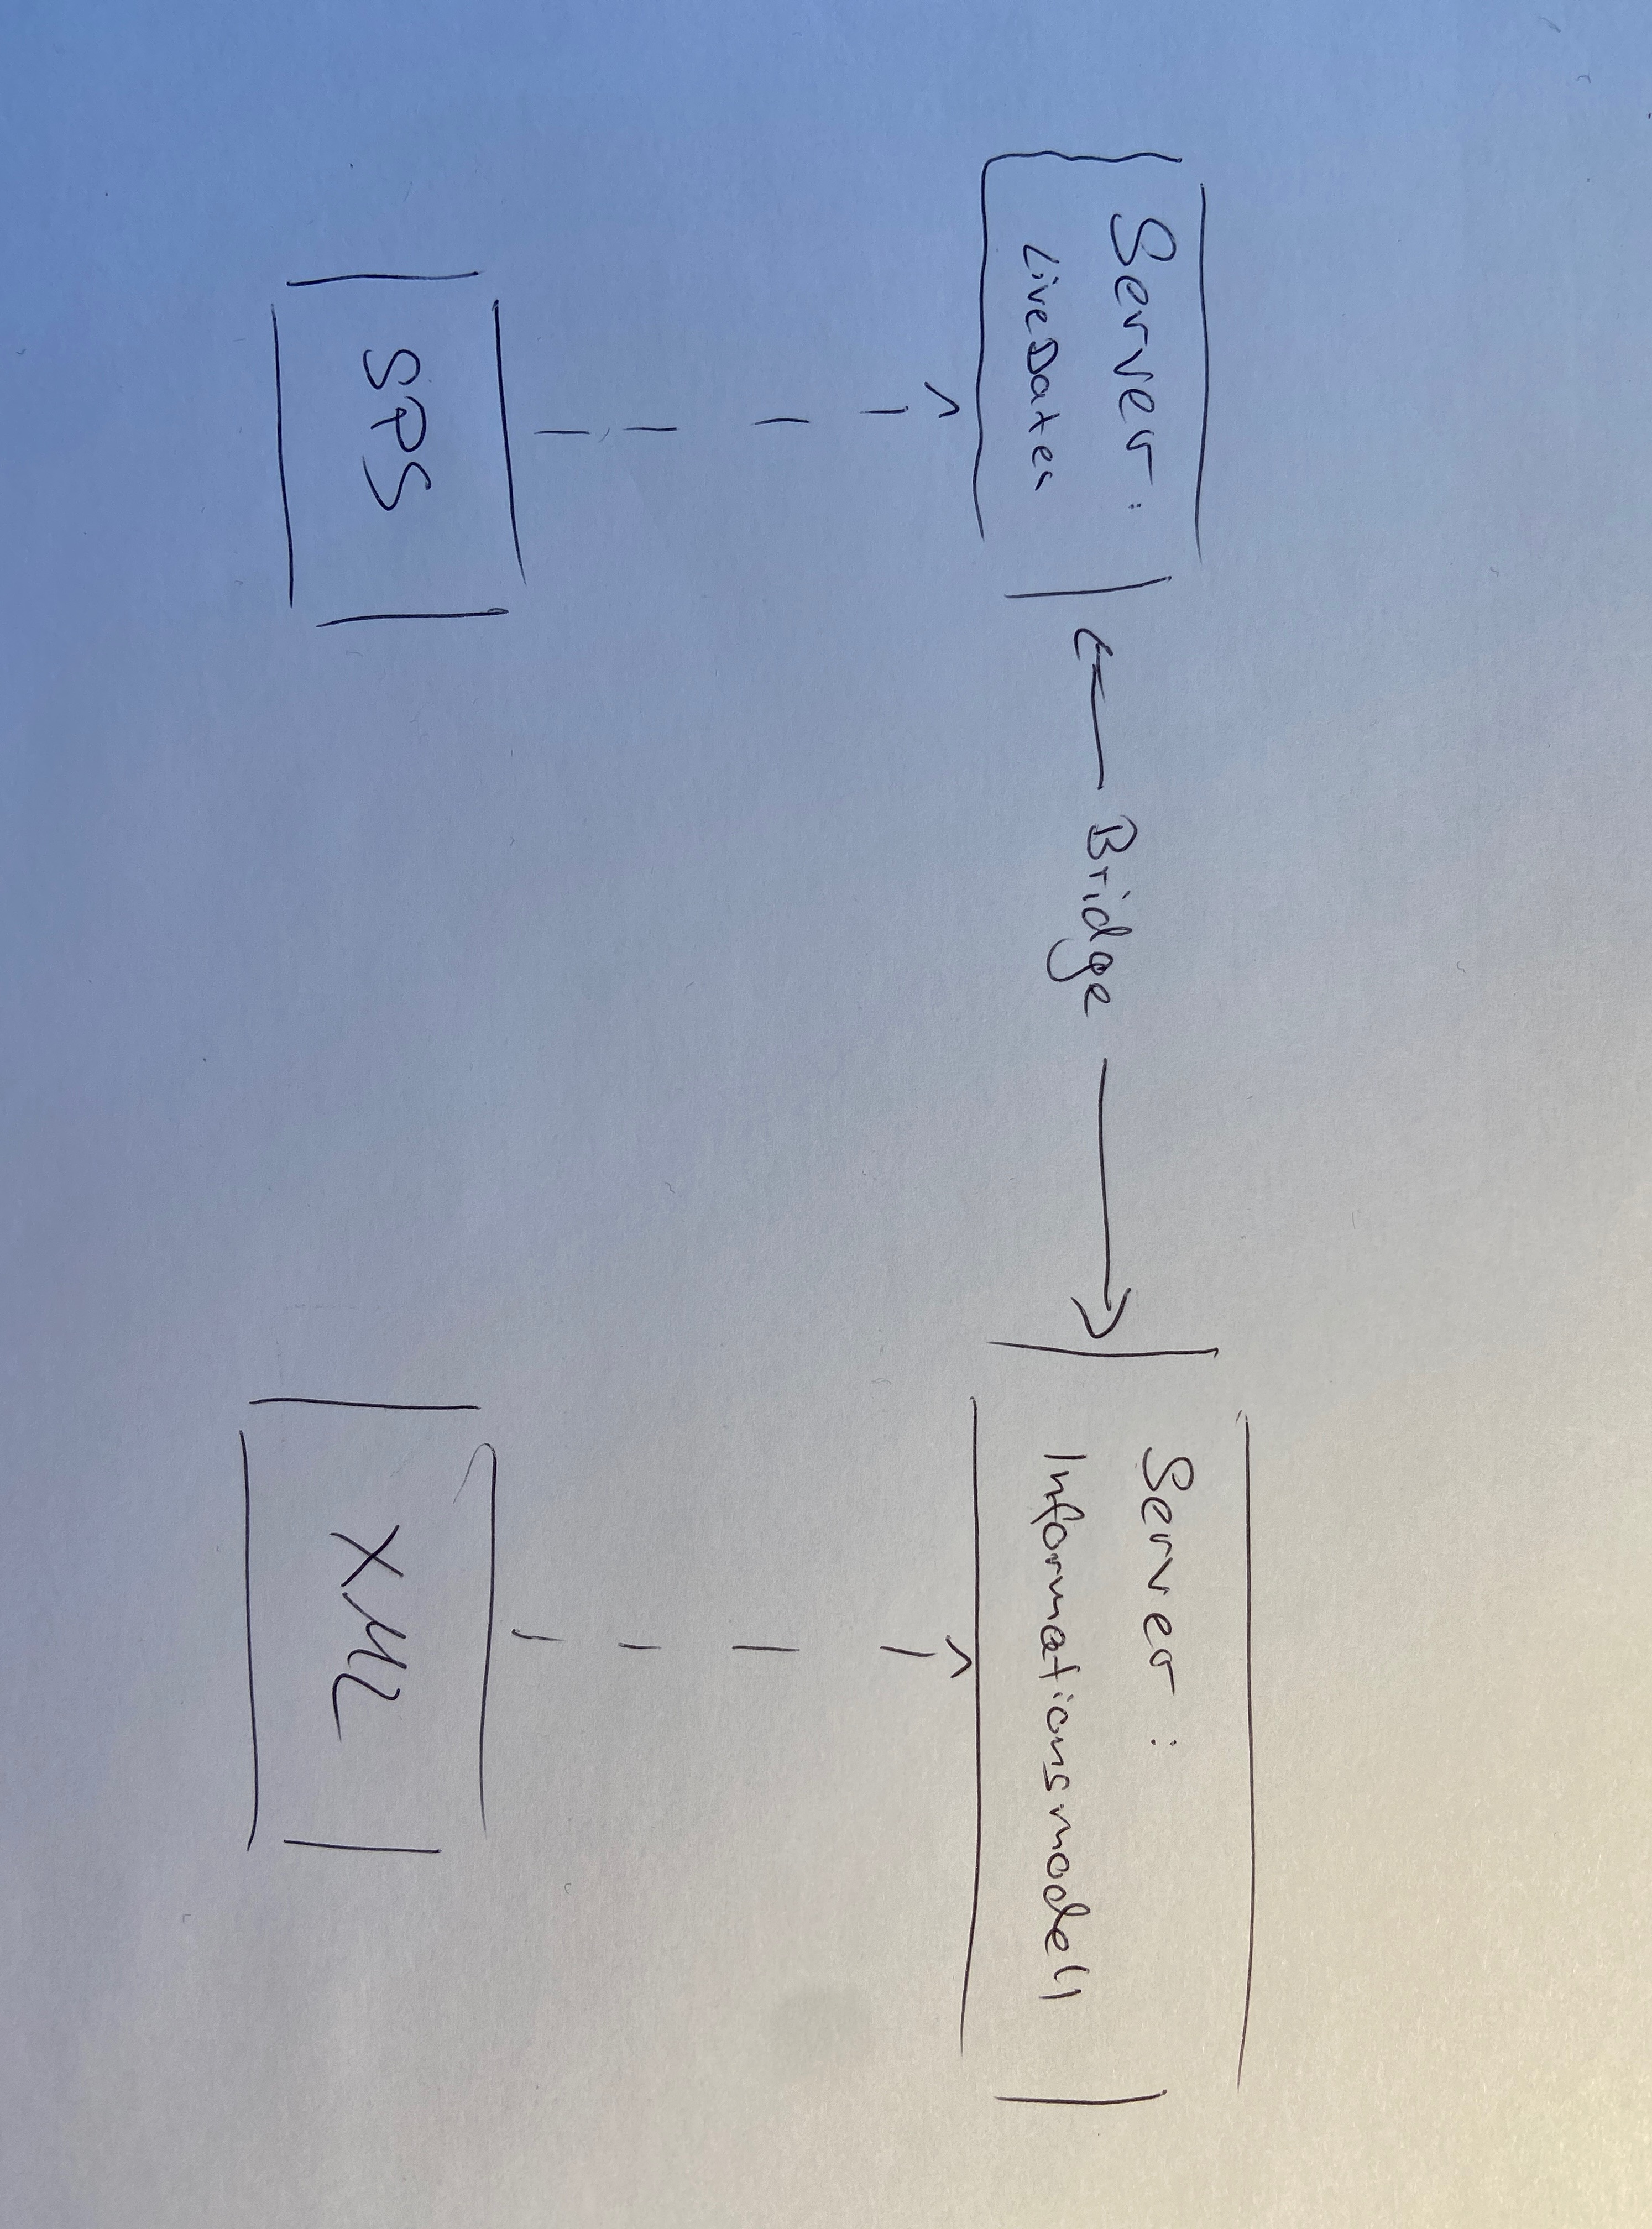 Server:
LiveDaten
Bridge
Server:
Informationsmodell
SPS
XML